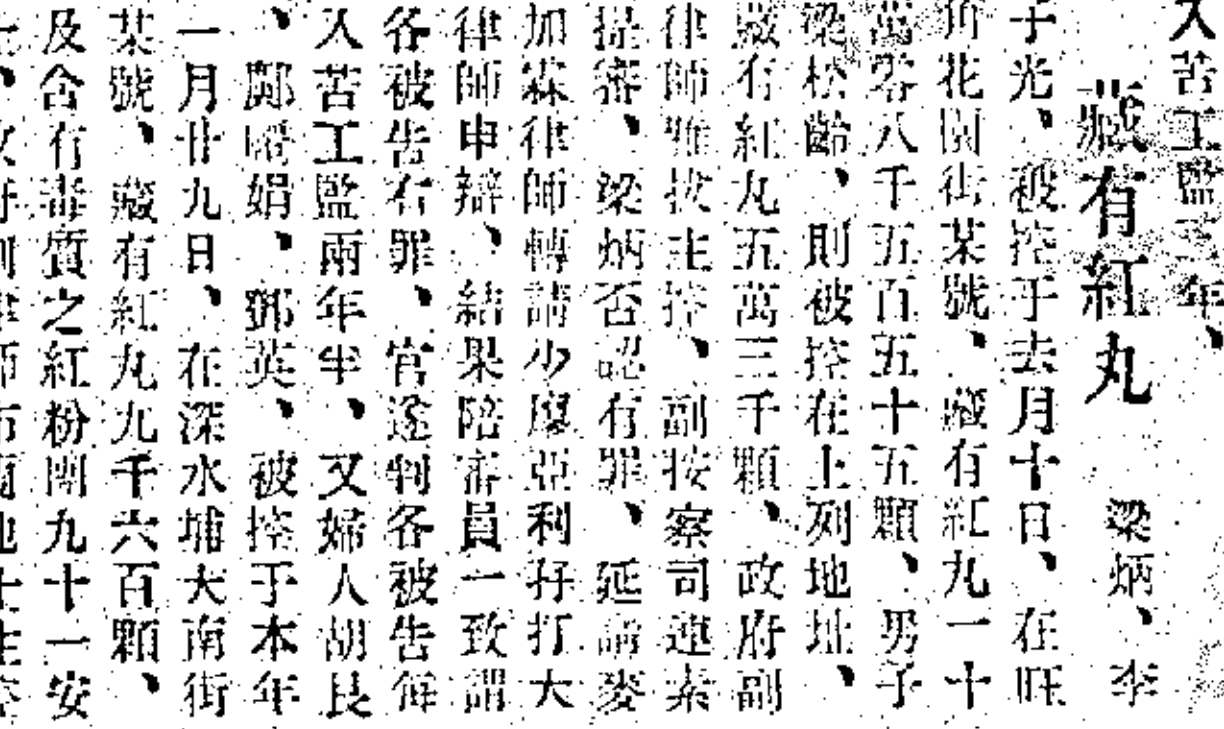 入苦工監三年、
藏有紅丸 梁炳、李
子光、被控于去月十日、在旺
角花園街某號、藏有紅丸一十
萬零八千五百五十五顆、男子
梁松齡、則被控在上列地址、
藏有紅丸五萬三千顆、政府副
律師 拔主控、副按察司連素
提審、梁炳否認有罪、延請麥
加霖律師轉請少廖亞利孖打大
律師申辯、結果陪審員一致謂
各被告有罪、官遂判各被告每
入苦工監兩年半、又婦人胡艮
、鄺 娟、鄧英、被控于本年
一月廿九日、在深水埔大南街
某號、藏有紅丸九千六百顆、
及含有毒質之紅粉團九十一安